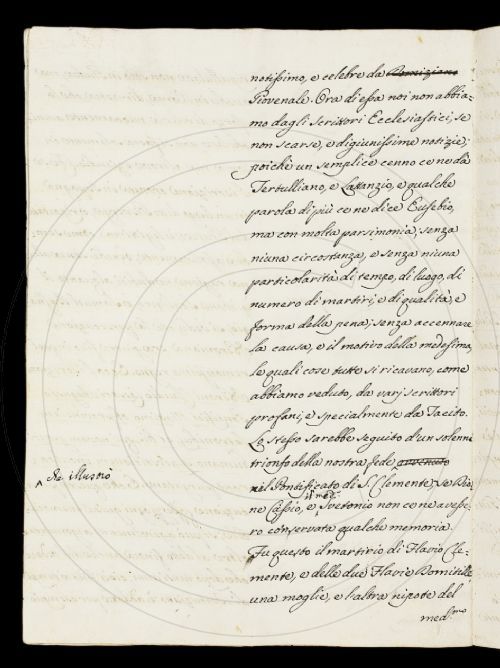 notissimo, e celebre da Domiziano
Giovenale. Ora di essa noi non abbia=
mo dagli Scrittori Ecclesiastici, se
non scarse, e digiunissime notizie;
poichè un semplice cenno ce ne dà
Tertulliano, e Lattanzio, e qualche
parola di più ce ne dice Eusebio,
ma con molta parsimonia; senza
niuna circostanza, e senza niuna
particolarità di tempo, di luogo, di
numero di martiri, e di qualità, e
forma della pena; senza accennare
la causa, e il motivo della medesima,
le quali cose tutte si ricavano, come
abbiamo veduto, da varj scrittori
profani, e specialmente da Tacito.
Lo stesso sarebbe seguito d'un solenne
trionfo della nostra fede avvenuto
che illustrò
il Pontificato di S. Clemente, se Dio=
ne Cassio, e Svetonio non ce ne avesse=
ro conservata qualche memoria.
Fu questo il martirio di Flavio Cle=
mente, e delle due Flavie Domitille
una moglie, e l'altra nipote del
med.mo